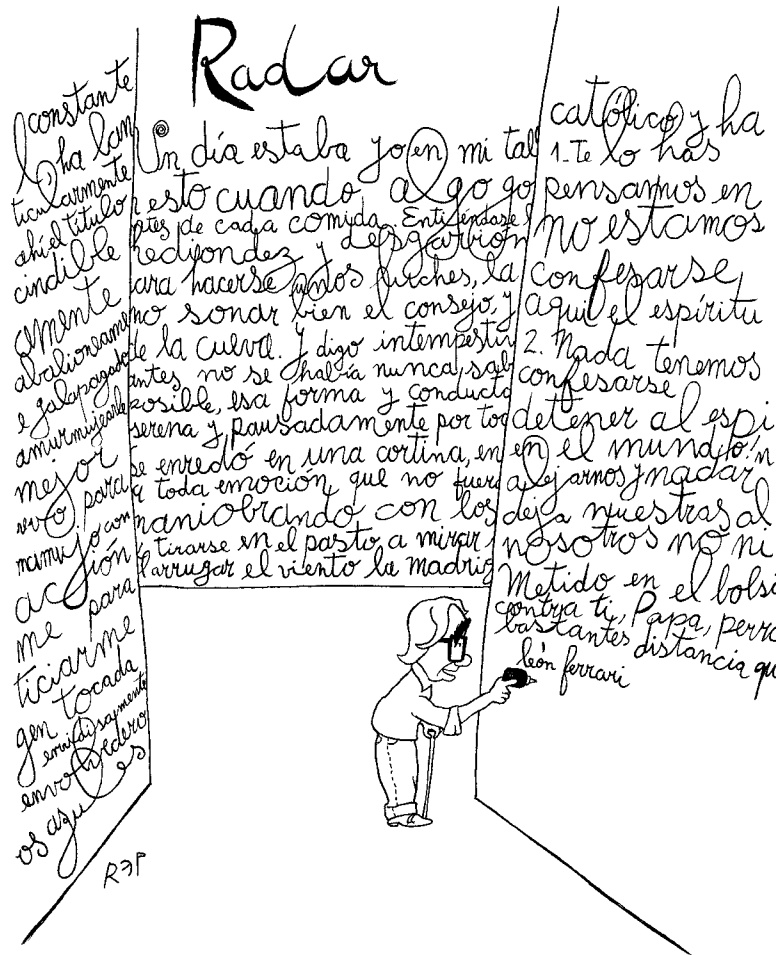 Radar
constante
ha lan
ticularmente
ahí el título
cindible
amente
abalioneame
e galapagado
amurmujearle
mejor
vivo para
mamujo con
acción
me para
ticiarme
gen tocada
envolvedero
os azules
Un día estaba yo en mi tal
esto cuando algo go
ntes de cada comida. Entiéndase
hediondez y desgarrón
ara hacerse untos fuches, la
no sonar bien el consejo, y
de la cueva. Y digo intempestiv
antes no se había nunca, sab
posible, esa forma y conducta
serena y pausadamente por tod
se enredó en una cortina, en
a toda emoción que no fuera
maniobrando con los
tirarse en el pasto a mirar
arrugar el viento la madrig
católico y ha
1. Te lo has
pensamos en
no estamos
confesarse,
aquí el espíritu
2. Nada tenemos
confesarse
detener al espi
en el mundo!n
alejarnos y nadar
deja nuestras al
nosotros no ni
Metido en el bolsi
contra ti, Papa, perro
bastantes distancia qu
león ferrari
REP